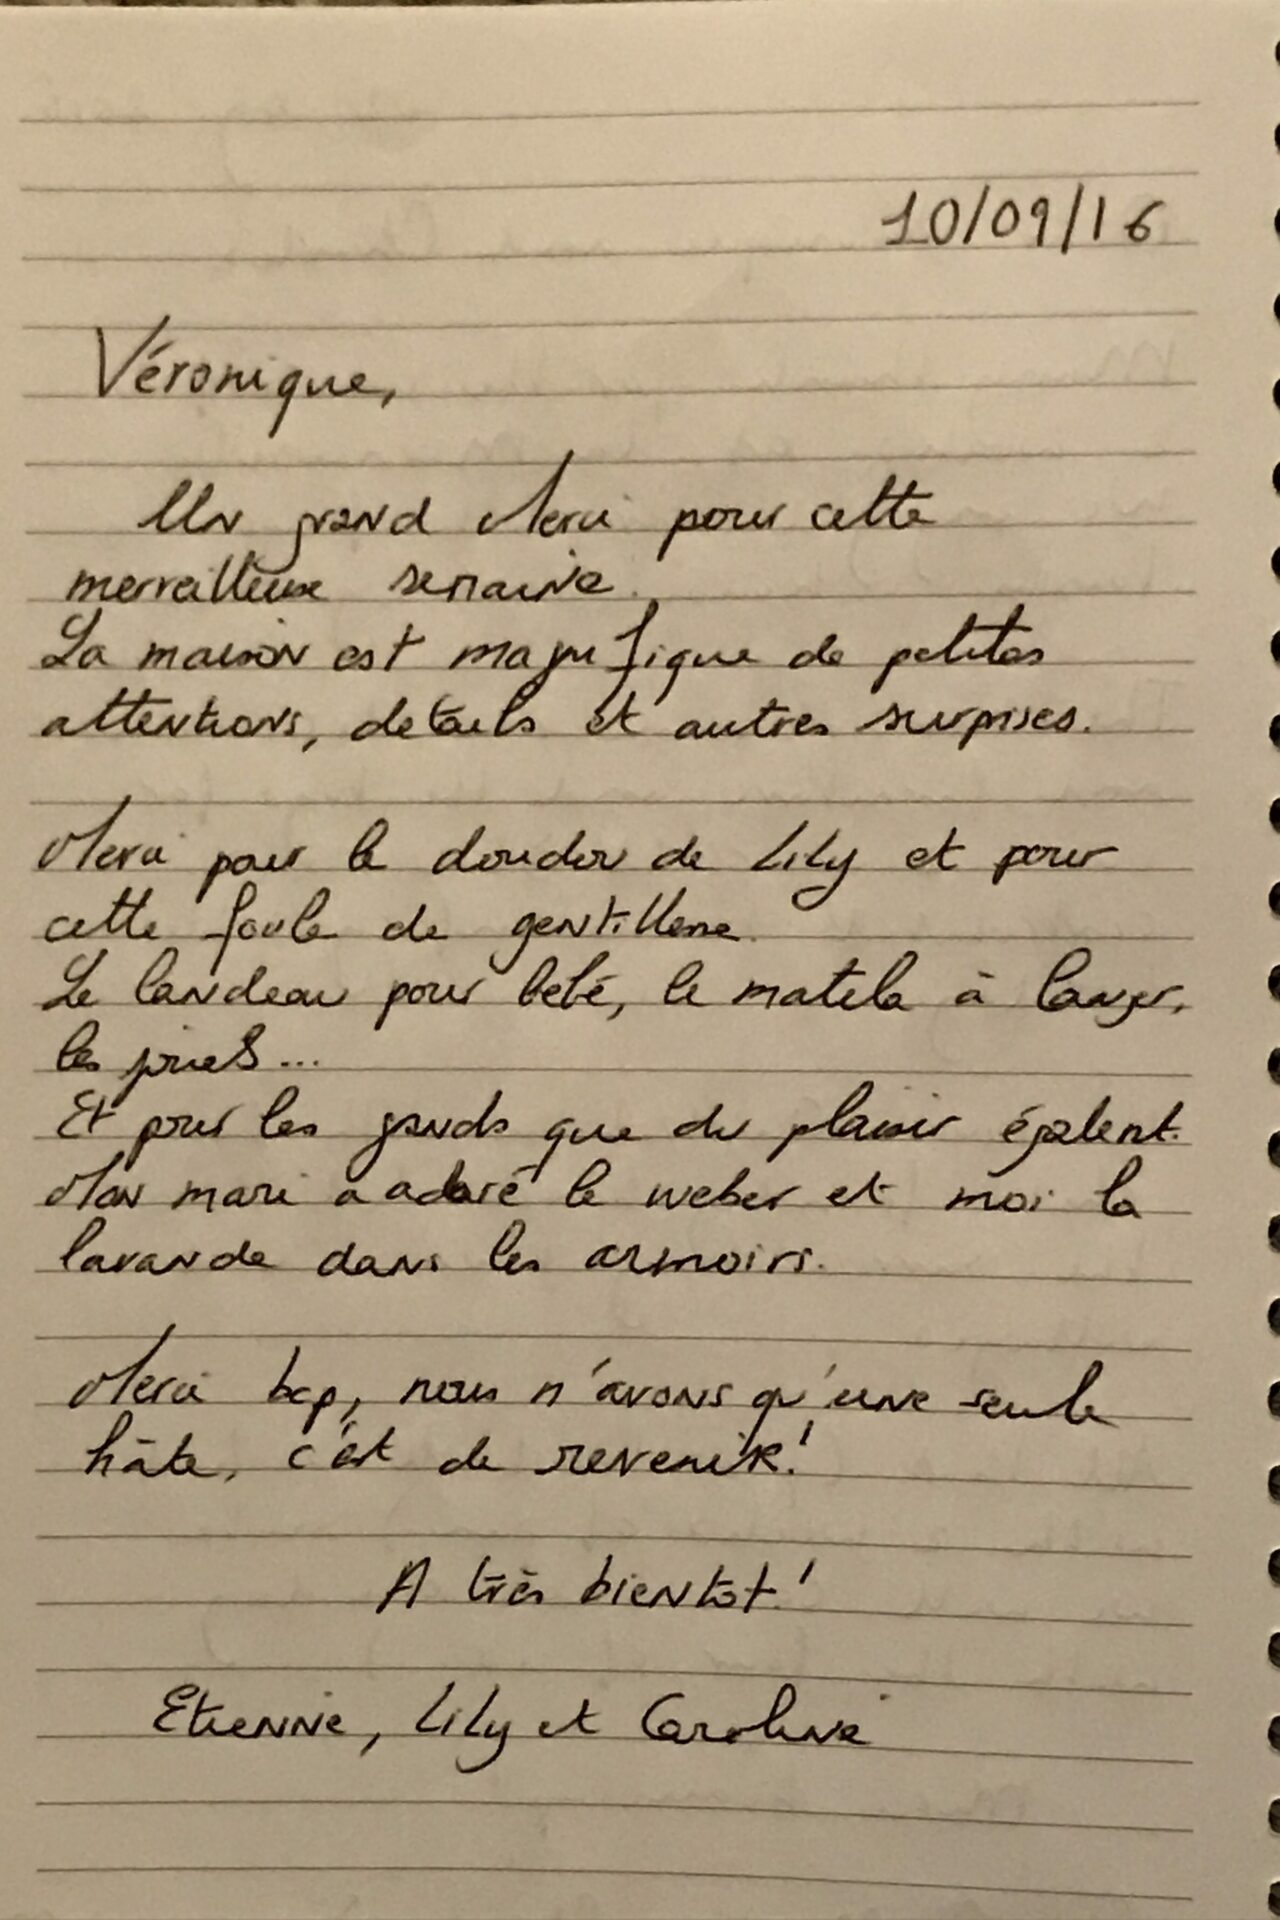 10/09/16
Véronique,
Un grand Merci pour cette
merveilleuse semaine.
La maison est magnifique de petites
attentions, détails et autres surprises.
Merci pour le doudou de Lily et pour
cette foule de gentillesse.
Le landeau pour bébé, le matela à langer,
les
Et pour les grands que du plaisir égalemt.
Mon mari a adoré le weber et moi la
lavande dans les armoirs.
Merci bcp, nous n'avons qu'une seule
hâte, c'est de revenir!
A très bientôt!
Etienne, Lily et Caroline